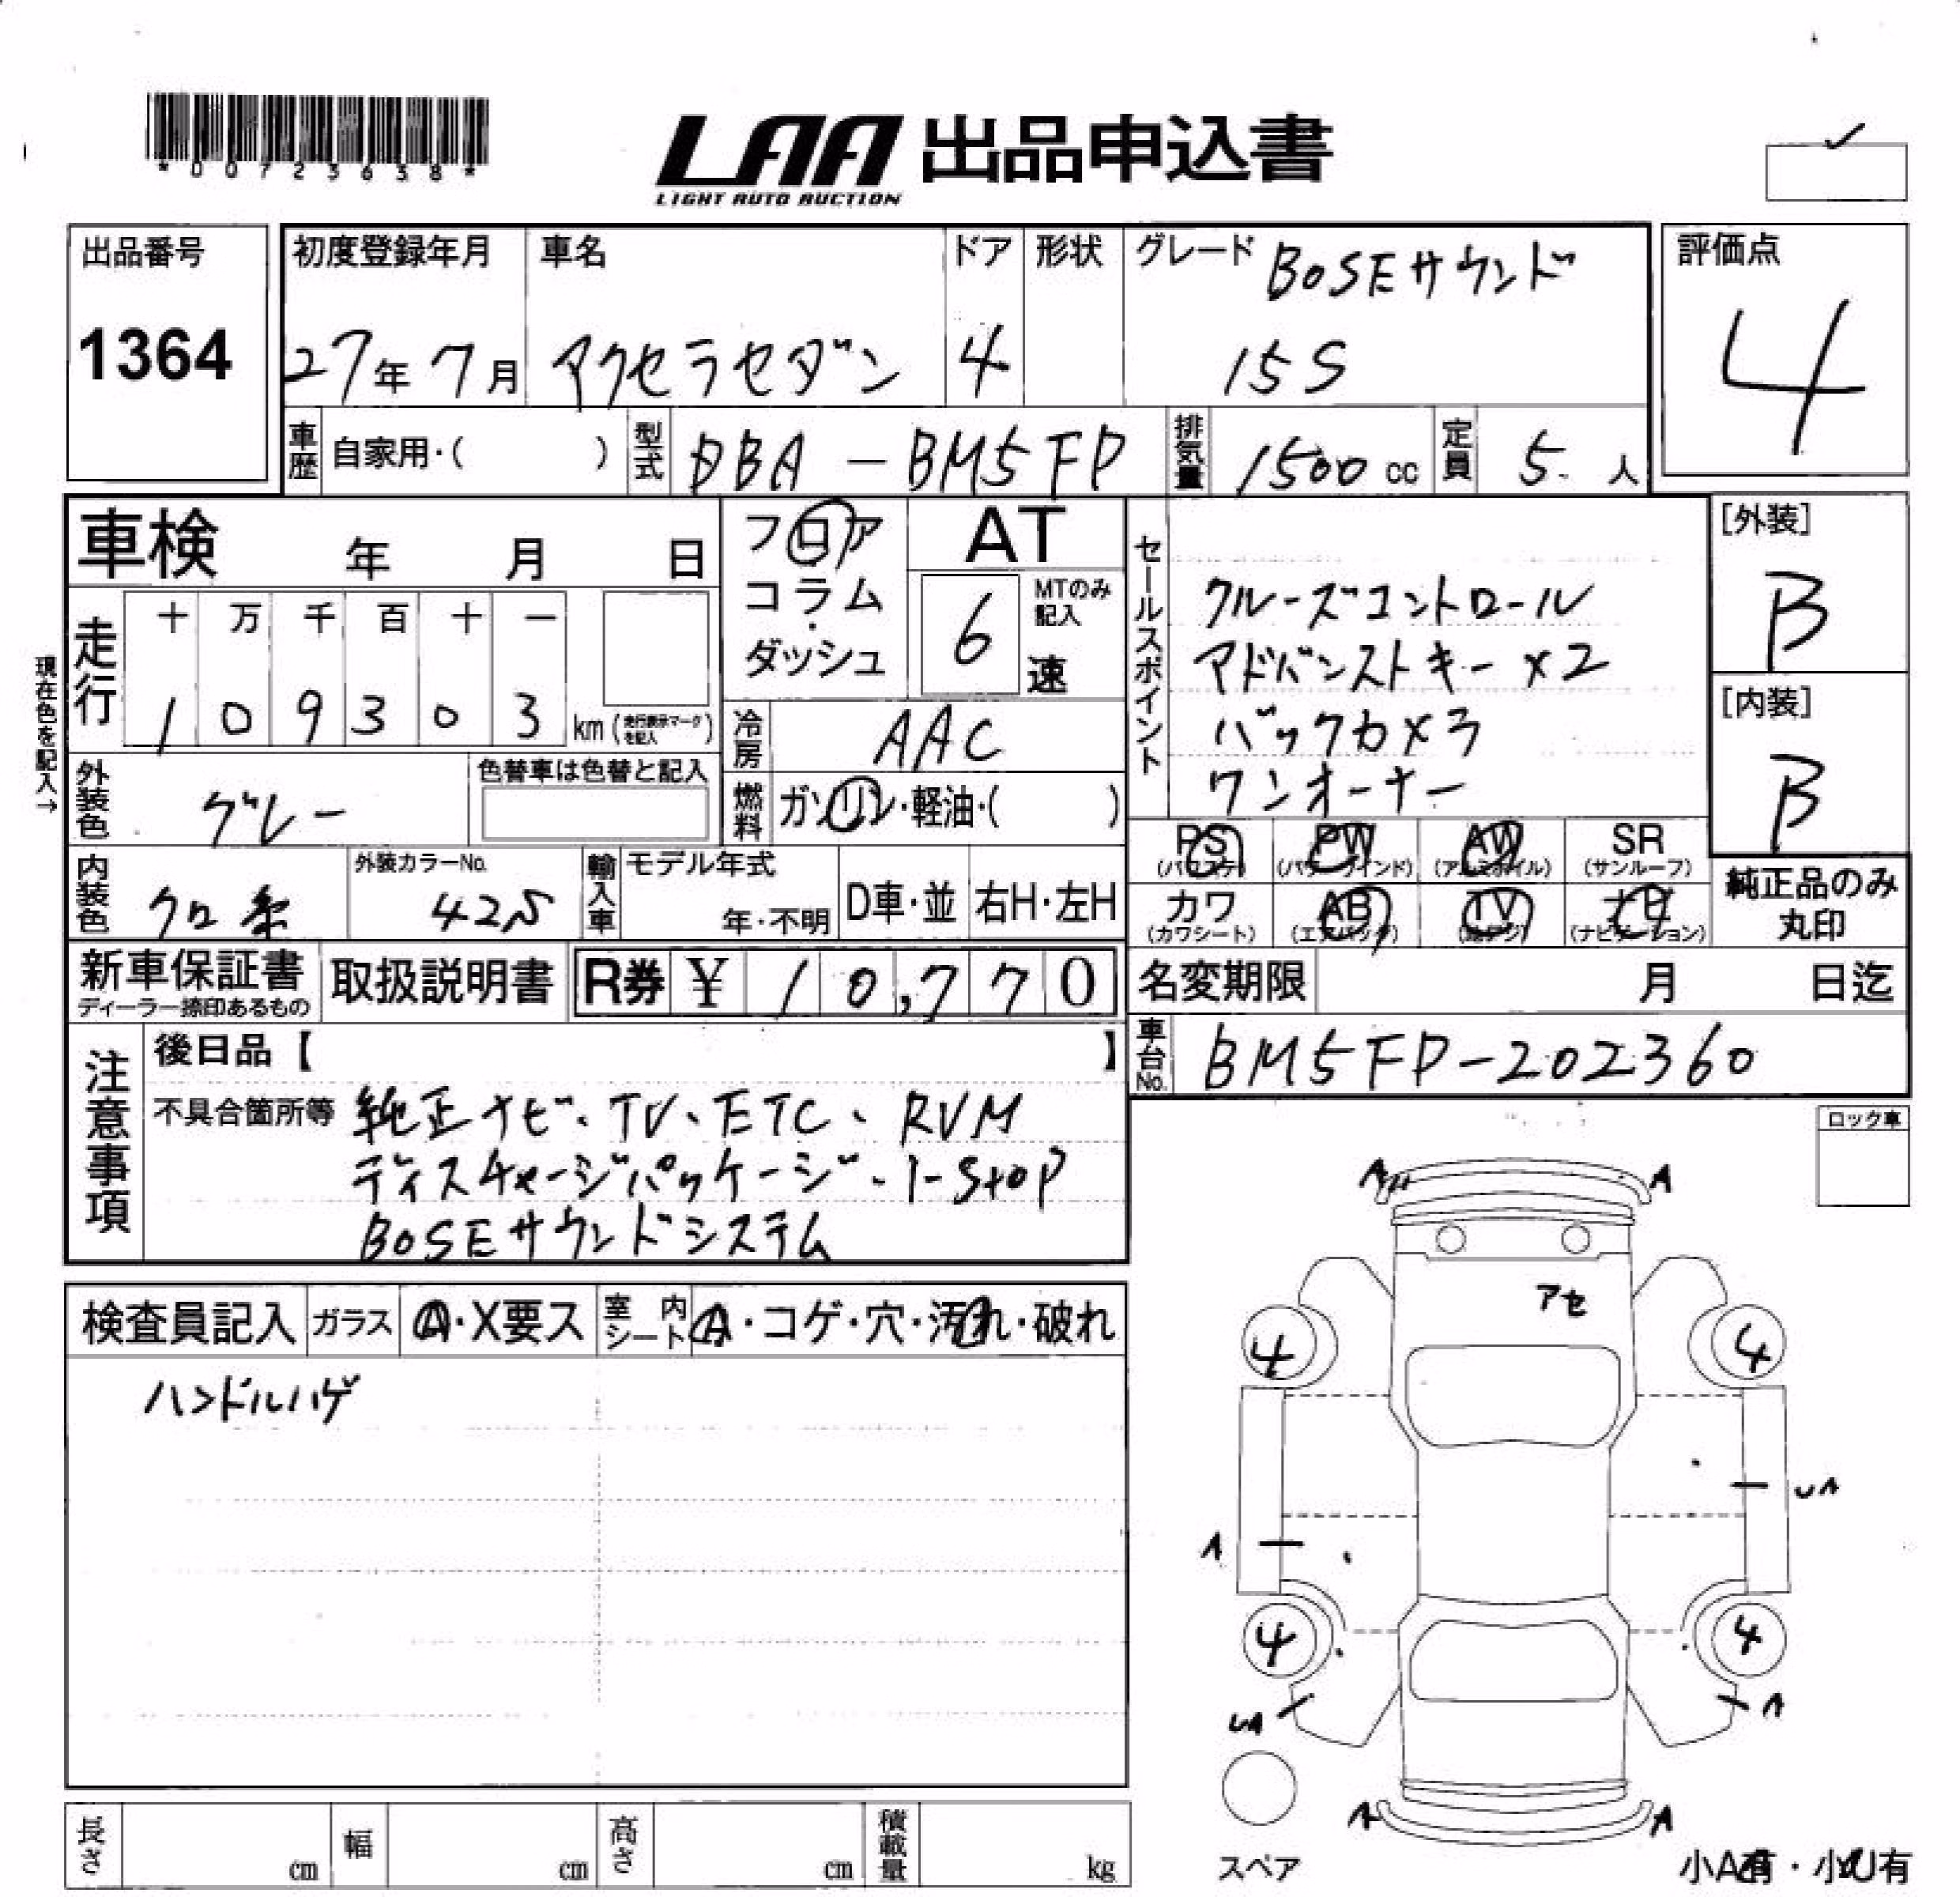 *00723638*
LAA 出品申込書
LIGHT AUTO AUCTION
出品番号
1364
初度登録年月
27年7月
車名
アクセラセダン
ドア
4
形状
グレード BOSEサウンド
15S
評価点
4
車歴 自家用・( )
型式 DBA-BM5FP
排気量 1500 cc
定員 5 人
車検 年 月 日
現在色を記入→
走行
十 万 千 百 十 一
1 0 9 3 0 3 km (走行表示マークを記入)
フロア
コラム
・
ダッシュ
AT
6 速
MTのみ記入
冷房 AAC
燃料 ガソリン・軽油・( )
外装色 グレー
色替車は色替と記入
内装色 クロ系
外装カラーNo.
42S
輸入車
モデル年式
年・不明
D車・並
右H・左H
セールスポイント
クルーズコントロール
アドバンストキー×2
バックカメラ
ワンオーナー
[外装]
B
[内装]
B
PS (パワステ)
PW (パワーウインド)
AW (アルミホイル)
SR (サンルーフ)
カワ (カワシート)
AB (エアバッグ)
TV (地デジ)
ナビ (ナビゲーション)
純正品のみ
丸印
新車保証書
ディーラー捺印あるもの
取扱説明書
R券 ¥ 10,770
名変期限 月 日迄
車台No. BM5FP-202360
注意事項
後日品【 】
不具合箇所等 純正ナビ、TV、ETC、RVM
ディスチャージパッケージ、i-stop
BOSEサウンドシステム
ロック車
検査員記入
ガラス A・X要ス
室内シート A・コゲ・穴・汚れ・破れ
ハンドルハゲ
A
A
アセ
4
4
UA
A
4
4
UA
A
A
A
スペア
小A有・小U有
長さ cm
幅 cm
高さ cm
積載量 kg